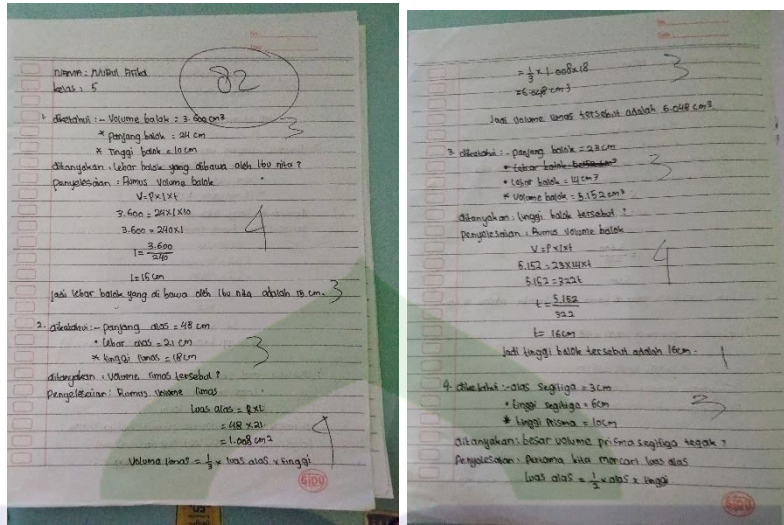 NAMA : NURUL Afifa
Kelas : 5
82
1. diketahui : - Volume balok = 3.600 cm3
3
* Panjang balok = 24 cm
* Tinggi balok = 10 cm
ditanyakan : Lebar balok yang dibawa oleh Ibu nita ?
Penyelesaian : Rumus Volume balok
V = P x l x t
3.600 = 24 x l x 10
3.600 = 240 x l
4
l = 3.600
240
l = 15 cm
Jadi lebar balok yang di bawa oleh Ibu nita adalah 15 cm.
3
2. diketahui : - panjang alas = 48 cm
• Lebar alas = 21 cm
* tinggi limas = 18 cm
3
ditanyakan : volume limas tersebut ?
Penyelesaian : Rumus volume limas
Luas alas = P x L
= 48 x 21
= 1.008 cm2
4
Volume limas = 1/3 x luas alas x tinggi
SIDU
= 1/3 x 1.008 x 18
= 6.048 cm3
3
Jadi volume limas tersebut adalah 6.048 cm3.
3. diketahui : - panjang balok = 23 cm
• Lebar balok = 14 cm3
3
* Volume balok = 5.152 cm3
ditanyakan : tinggi balok tersebut ?
Penyelesaian : Rumus volume balok
V = P x l x t
5.152 = 23 x 14 x t
4
5.152 = 322 t
t = 5.152
322
t = 16 cm
Jadi tinggi balok tersebut adalah 16 cm.
1
4. diketahui : - alas segitiga = 3 cm
• tinggi segitiga = 6 cm
3
* tinggi Prisma = 10 cm
ditanyakan : besar volume prisma segitiga tegak ?
Penyelesaian : Pertama kita mencari luas alas
Luas alas = 1/2 x alas x tinggi
SIDU